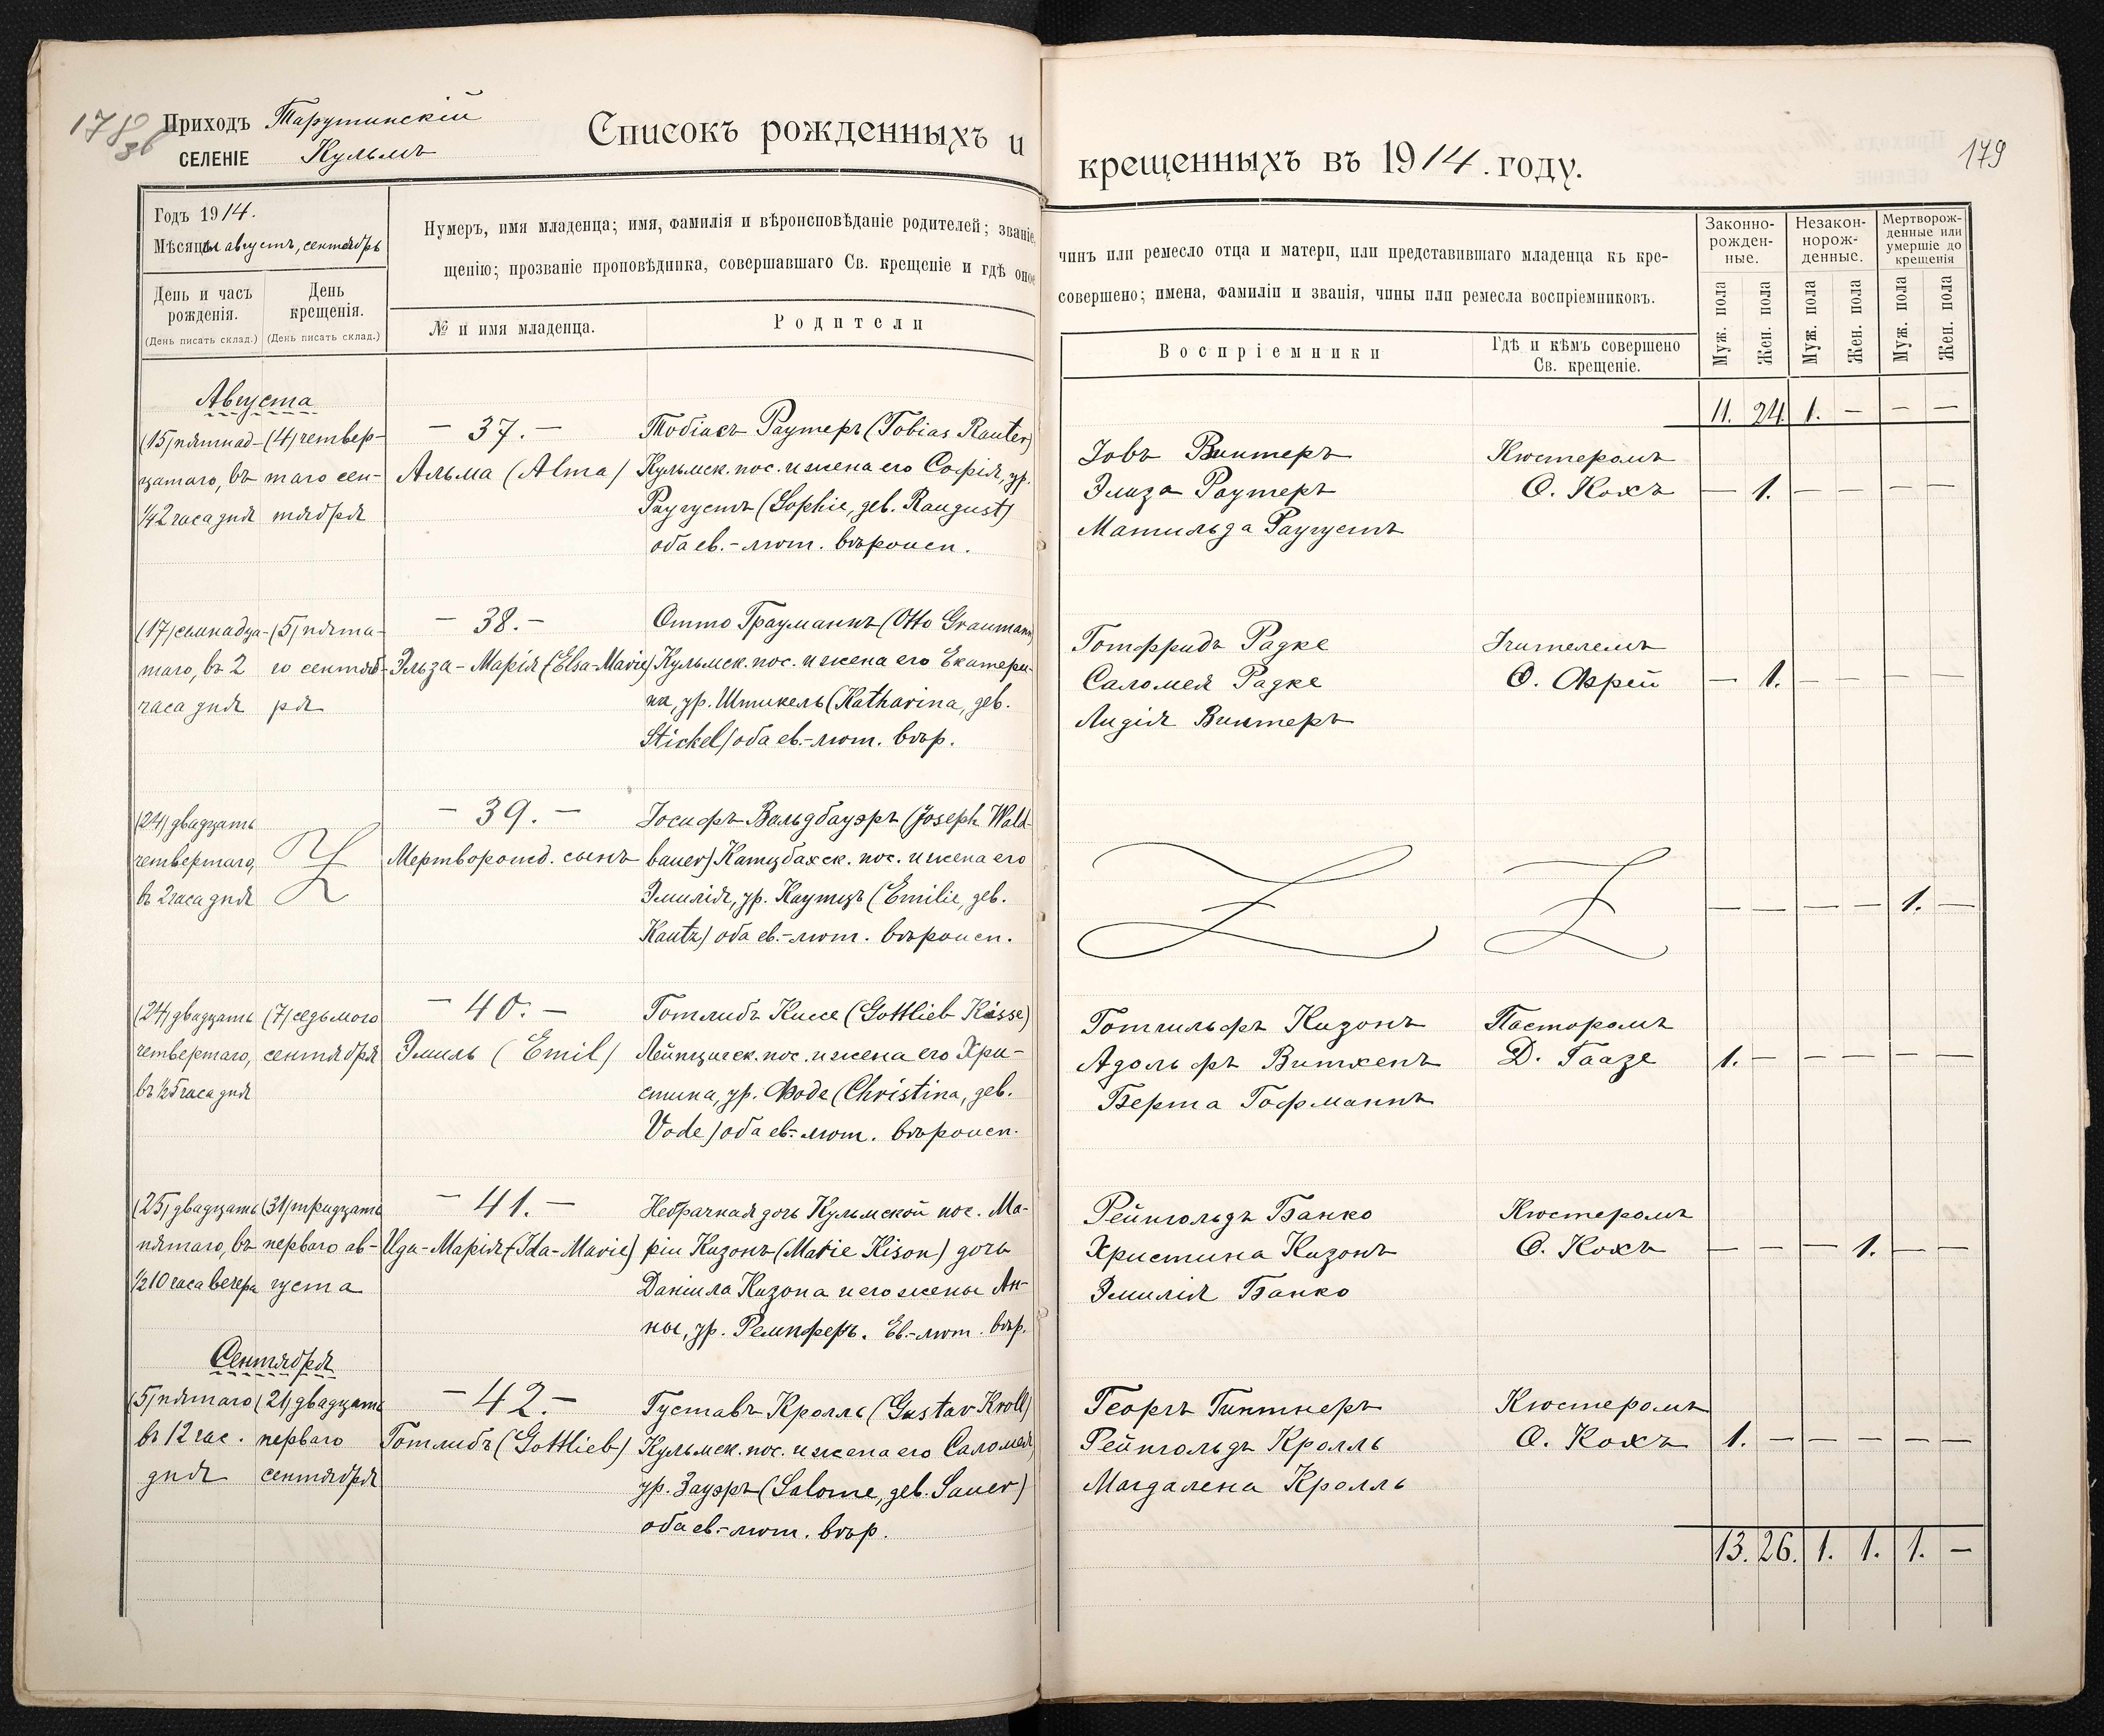 178 об
Приходъ Тарутинскій
СЕЛЕНІЕ Кульмъ
Списокъ рожденныхъ и
крещенныхъ въ 1914. году.
179
Годъ 1914.
Мѣсяцы августъ, сентябрь
Нумеръ, имя младенца; имя, фамилія и вѣроисповѣданіе родителей; званіе,
щенію; прозваніе проповѣдника, совершавшаго Св. крещеніе и гдѣ оное
чинъ или ремесло отца и матери, или представившаго младенца къ кре-
совершено; имена, фамиліи и званія, чины или ремесла воспріемниковъ.
День и часъ рожденія.
(День писать склад.)
День крещенія.
(День писать склад.)
№ и имя младенца.
Родители
Воспріемники
Гдѣ и кѣмъ совершено
Св. крещеніе.
Законно-
рожден-
ные.
Незакон-
норож-
денные.
Мертворож-
денные или
умершіе до
крещенія
Муж. пола
Жен. пола
Муж. пола
Жен. пола
Муж. пола
Жен. пола
11. 24 1. — — —
Августа
(15) пятнад-
цатаго, въ
½2 часа дня
(4) четвер-
таго сен-
тября
— 37. —
Альма (Alma)
Тобіасъ Раутеръ (Tobias Rauter)
Кульмск. пос. и жена его Софія, ур.
Раугустъ (Sophie, geb. Raugust)
оба ев.-лют. вѣроисп.
Іовъ Винтеръ
Элиза Раутеръ
Матильда Раугустъ
Кюстеромъ
О. Кохъ
— 1. — — — —
(17) семнадца-
таго, въ 2
часа дня
(5) пята-
го сентяб-
ря
— 38. —
Эльза-Марія (Elsa-Marie)
Отто Грауманнъ (Otto Graumann)
Кульмск. пос. и жена его Екатери-
на, ур. Штикель (Katharina, geb.
Stickel) оба ев.-лют. вѣр.
Готфридъ Радке
Саломея Радке
Лидія Винтеръ
Учителемъ
О. Фрей
— 1. — — — —
(24) двадцать
четвертаго,
въ 2 часа дня
— 39. —
Мертворожд. сынъ
Іосифъ Вальдбауэръ (Joseph Wald-
bauer) Катцбахск. пос. и жена его
Эмилія, ур. Каутцъ (Emilie, geb.
Kautz) оба ев.-лют. вѣроисп.
— — — — 1. —
(24) двадцать
четвертаго,
въ ½5 часа дня
(7) седьмого
сентября
— 40. —
Эмиль (Emil)
Готлибъ Киссе (Gottlieb Kisse)
Лейпцигск. пос. и жена его Хри-
стина, ур. Фоде (Christina, geb.
Vode) оба ев.-лют. вѣроисп.
Готгильфъ Кизонъ
Адольфъ Виткенъ
Берта Гофманнъ
Пасторомъ
Д. Гаазе
1. — — — — —
(25) двадцать
пятаго, въ
½10 часа вечера
(31) тридцать
перваго ав-
густа
— 41. —
Ида-Марія (Ida-Marie)
Небрачная дочь Кульмской пос. Ма-
ріи Кизонъ (Marie Kison) дочь
Даніила Кизона и его жены Ан-
ны, ур. Ремпферъ. Ев.-лют. вѣр.
Рейнгольдъ Банко
Христина Кизонъ
Эмилія Банко
Кюстеромъ
О. Кохъ
— — — 1. — —
Сентября
(5) пятаго
въ 12 час.
дня
(21) двадцать
перваго
сентября
— 42. —
Готлибъ (Gottlieb)
Густавъ Кролль (Gustav Kroll)
Кульмск. пос. и жена его Саломея,
ур. Зауэръ (Salome, geb. Sauer)
оба ев.-лют. вѣр.
Георгъ Гинтнеръ
Рейнгольдъ Кролль
Магдалена Кролль
Кюстеромъ
О. Кохъ
1. — — — — —
13. 26. 1. 1. 1. —